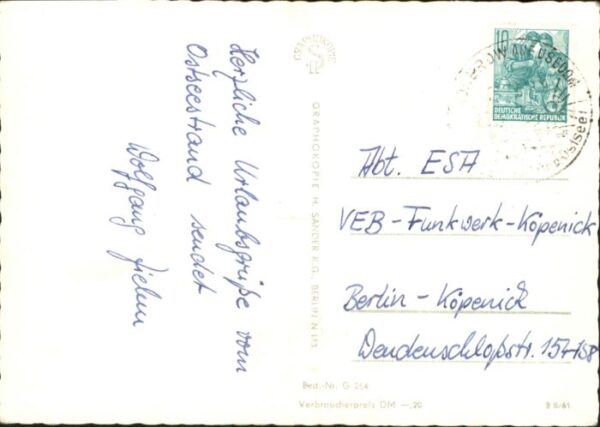 Herzliche Urlaubsgrüße vom
Ostseestrand sendet
Wolfgang
GRAPHOKOPIE
GRAPHOKOPIE H. SANDER K.G., BERLIN N 113
10
DEUTSCHE
DEMOKRATISCHE REPUBLIK
USEDOM
Abt. ESA
VEB-Funkwerk-Köpenick
Berlin-Köpenick
Wendenschloßstr. 154-158
Best.-Nr. G 254
Verbraucherpreis DM -,20